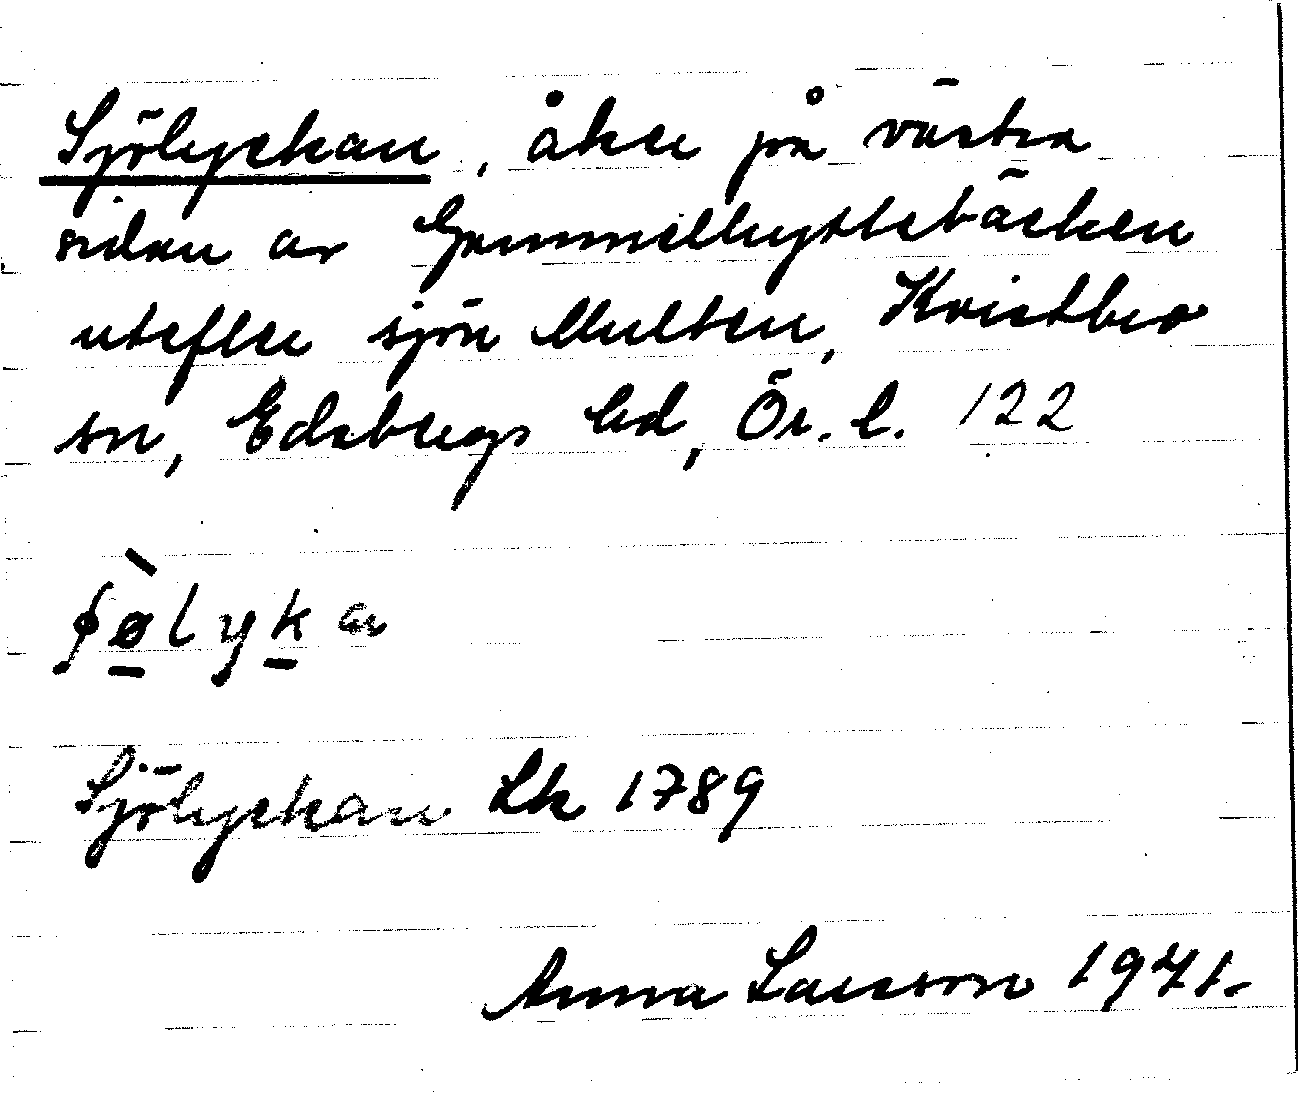 Sjölyckan, åker på västra
sidan av Gammelhyttebäcken
utefter sjön Multen, Kvistbro
sn, Edsbergs hd, Ör. l. 122
ʃø̱̀lyḵa
Sjölyckan Lk 1789
Anna Larsson 1971.